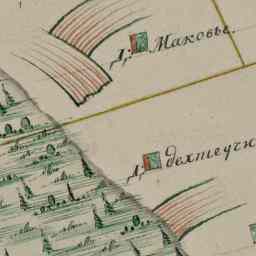 Д: Маковье.
Д. дехтеучк